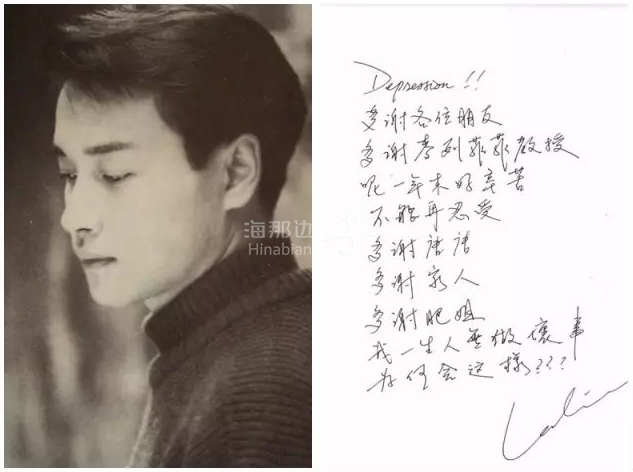 海那边
Hinabian
Depression!!
多謝各位朋友
多謝李列菲菲教授
呢一年來好辛苦
不能再忍受
多謝唐唐
多謝家人
多謝肥姐
我一生人無做壞事
為何會這樣???
Leslie